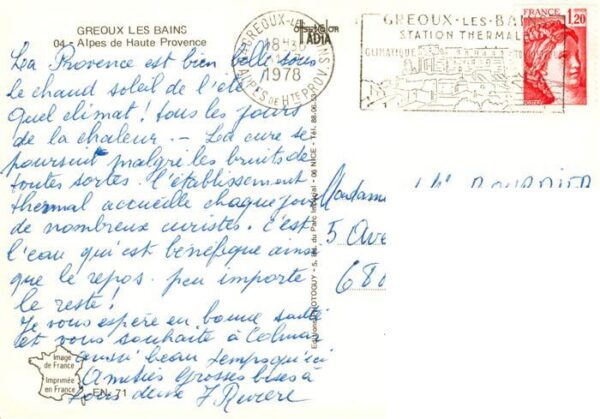 GREOUX LES BAINS
04 - Alpes de Haute Provence
La Provence est bien belle sous
le chaud soleil de l'été
Quel climat ! tous les jours
de la chaleur. - La cure se
poursuit malgré les bruits de
toutes sortes. l'établissement
thermal accueille chaque jour
de nombreux curistes. C'est
l'eau qui est bénéfique ainsi
que le repos. peu importe
le reste !
Je vous espère en bonne santé
et vous souhaite à Colmar
aussi beau temps qu'ici
Amitiés Grosses bises à
deux J Rivière
Image
de France
Imprimée
en France
EN. 71
TADIA
GREOUX-LES-
18H
1978
ALPES DE HTE PROV.
GREOUX-LES-BAI
STATION THERMAL
CLIMATIQUE
FRANCE
1,20
5, du Parc Impérial - 06 NICE - Tél. 88-06-
Madame
5 Ave
680